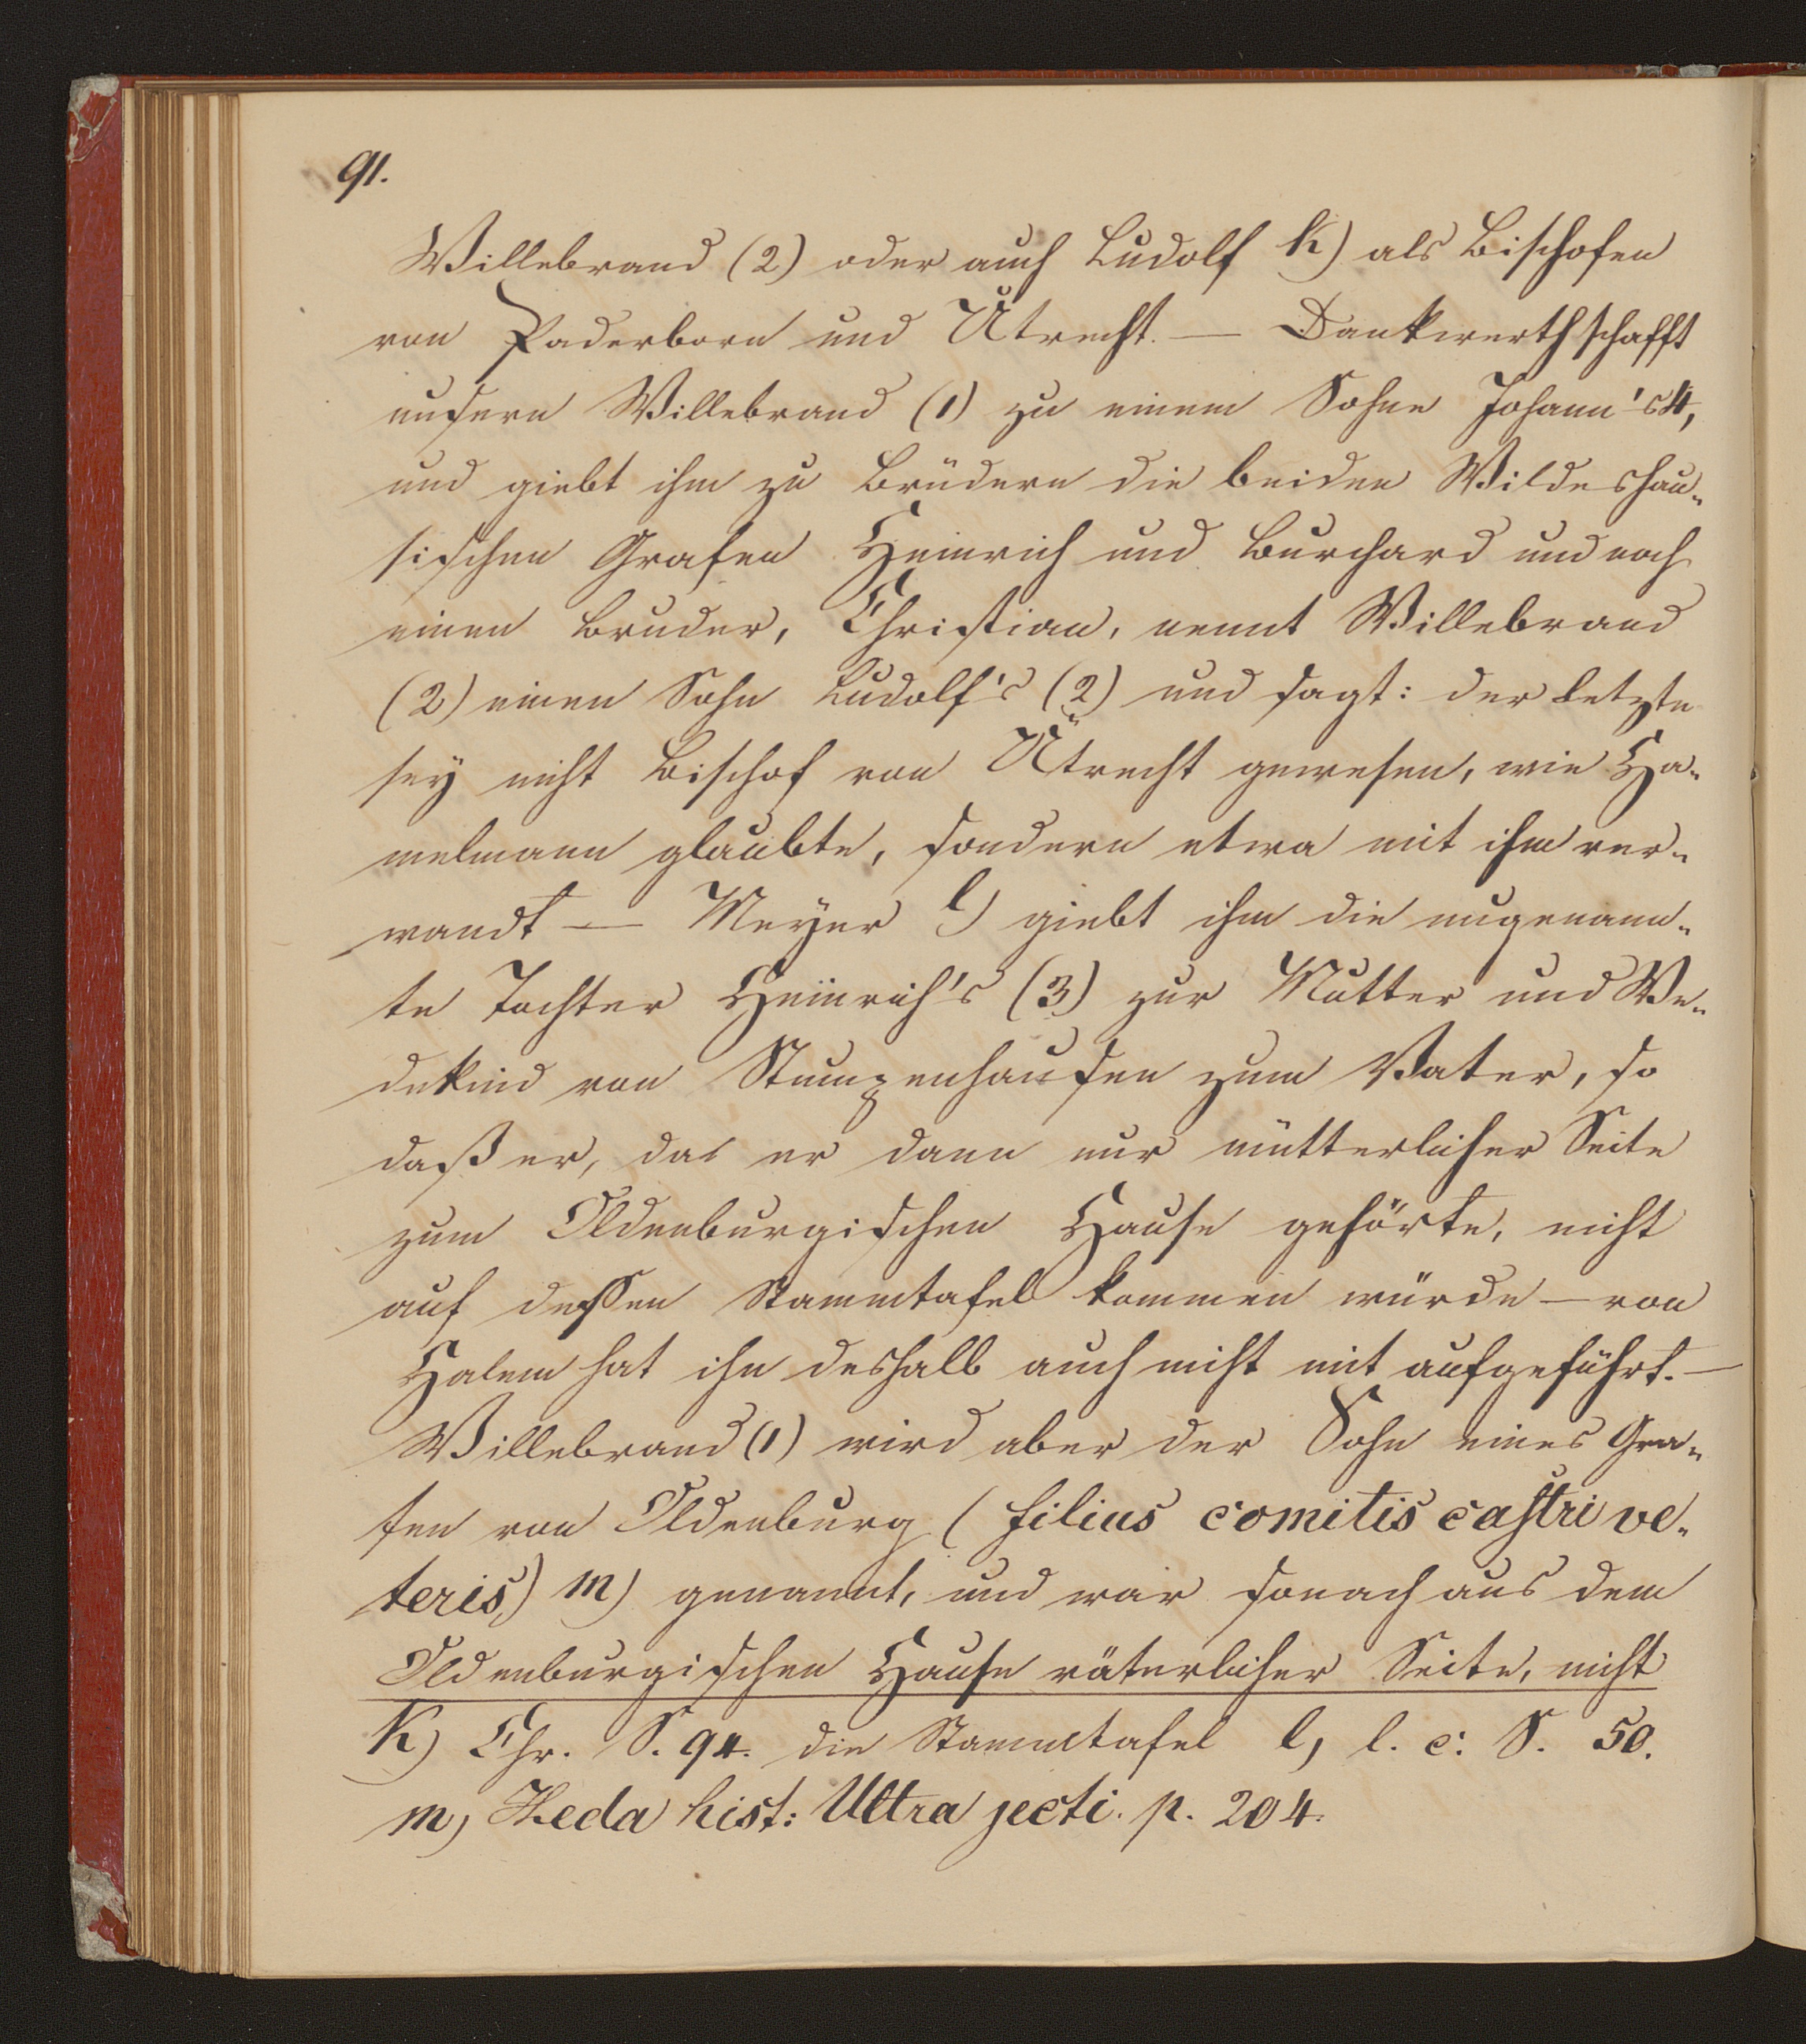 91.
Willebrand (2) oder auch Ludolf k) als Bischofen
von Paderborn und Utrecht. — Dankwerth schafft
unsern Willebrand (1) zu einem Sohne Johann's 4,
und giebt ihm zu Brüdern die beiden Wildeshau-
sischen Grafen Heinrich und Burchard und noch
einen Bruder, Christian, nennt Willebrand
(2) einen Sohn Ludolf's (2) und sagt: der letzte
sey nicht Bischof von Utrecht gewesen, wie Ha-
melmann glaubte, sondern etwa mit ihm ver-
wandt — Meyer l) giebt ihm die ungenann-
te Tochter Heinrich's (3) zur Mutter und We-
dekind von Stumpenhausen zum Vater, so
daß er, das er dann nur mütterlicher Seite
zum Oldenburgischen Hause gehörte, nicht
auf dessen Stammtafel kommen würde — von
Halem hat ihn deshalb auch nicht mit aufgeführt. —
Willebrand (1) wird aber der Sohn eines Gra-
fen von Oldenburg (filius comitis castri ve-
teris) m) genannt, und war sonach aus dem
Oldenburgischen Hause väterlicher Seite, nicht
k) Chr. S. 94. die Stammtafel l, l. c: S. 50.
m, Heda hist: Ultra jecti. p. 204.